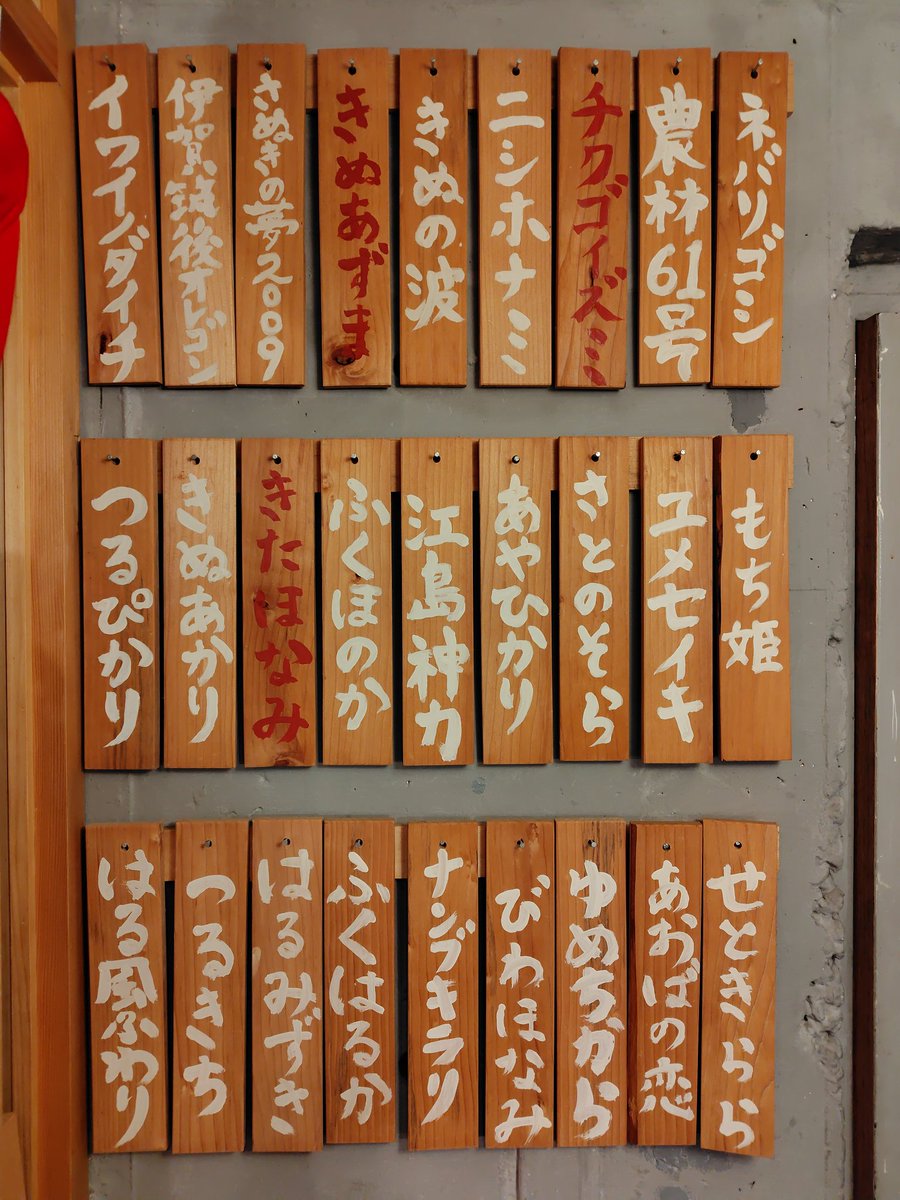 ネバリゴシ
農林61号
チクゴイズミ
ニシホナミ
きぬの波
きぬあずま
さぬきの夢2009
伊賀筑後オレゴン
イワイノダイチ
もち姫
ユメセイキ
さとのそら
あやひかり
江島神力
ふくほのか
きたほなみ
きぬあかり
つるぴかり
せときらら
あおばの恋
ゆめちから
びわほなみ
ナンブキラリ
ふくはるか
はるみずき
つるきち
はる風ふわり